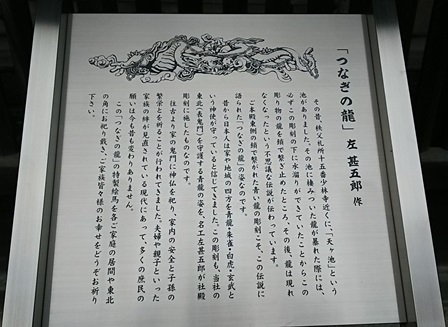 「つなぎの龍」 左 甚五郎 作
その昔、秩父札所十五番少林寺近くに、「天ヶ池」という
池がありました。その池に棲みついた龍が暴れた際には、
必ずこの彫刻の下に水溜りができていたことからこの
彫り物の龍を鎖で繋ぎ止めたところ、その後、龍は現れ
なくなったという不思議な伝説が伝わっています。
ご本殿東側の鎖で繋がれた青い龍の彫刻こそ、この伝説に
語られた「つなぎの龍」の姿なのです。
昔から日本人は家や地域の四方を青龍・朱雀・白虎・玄武と
いう神使が守っていると信じてきました。この彫刻も、当社の
東北(表鬼門)を守護する青龍の姿を、名工左甚五郎が社殿
彫刻に施したものなのです。
往古より家の鬼門に神仏を祀り、家内の安全と子孫の
繁栄とを祈ることが行われてきました。夫婦や親子といった
家族の絆が見直されている現代にあって、多くの庶民の
願いは今も昔も変わりありません。
この「つなぎの龍」の特製絵馬を各ご家庭の居間や東北
の角にお祀り戴き、ご家族皆々様のお幸せをどうぞお祈り
下さい。